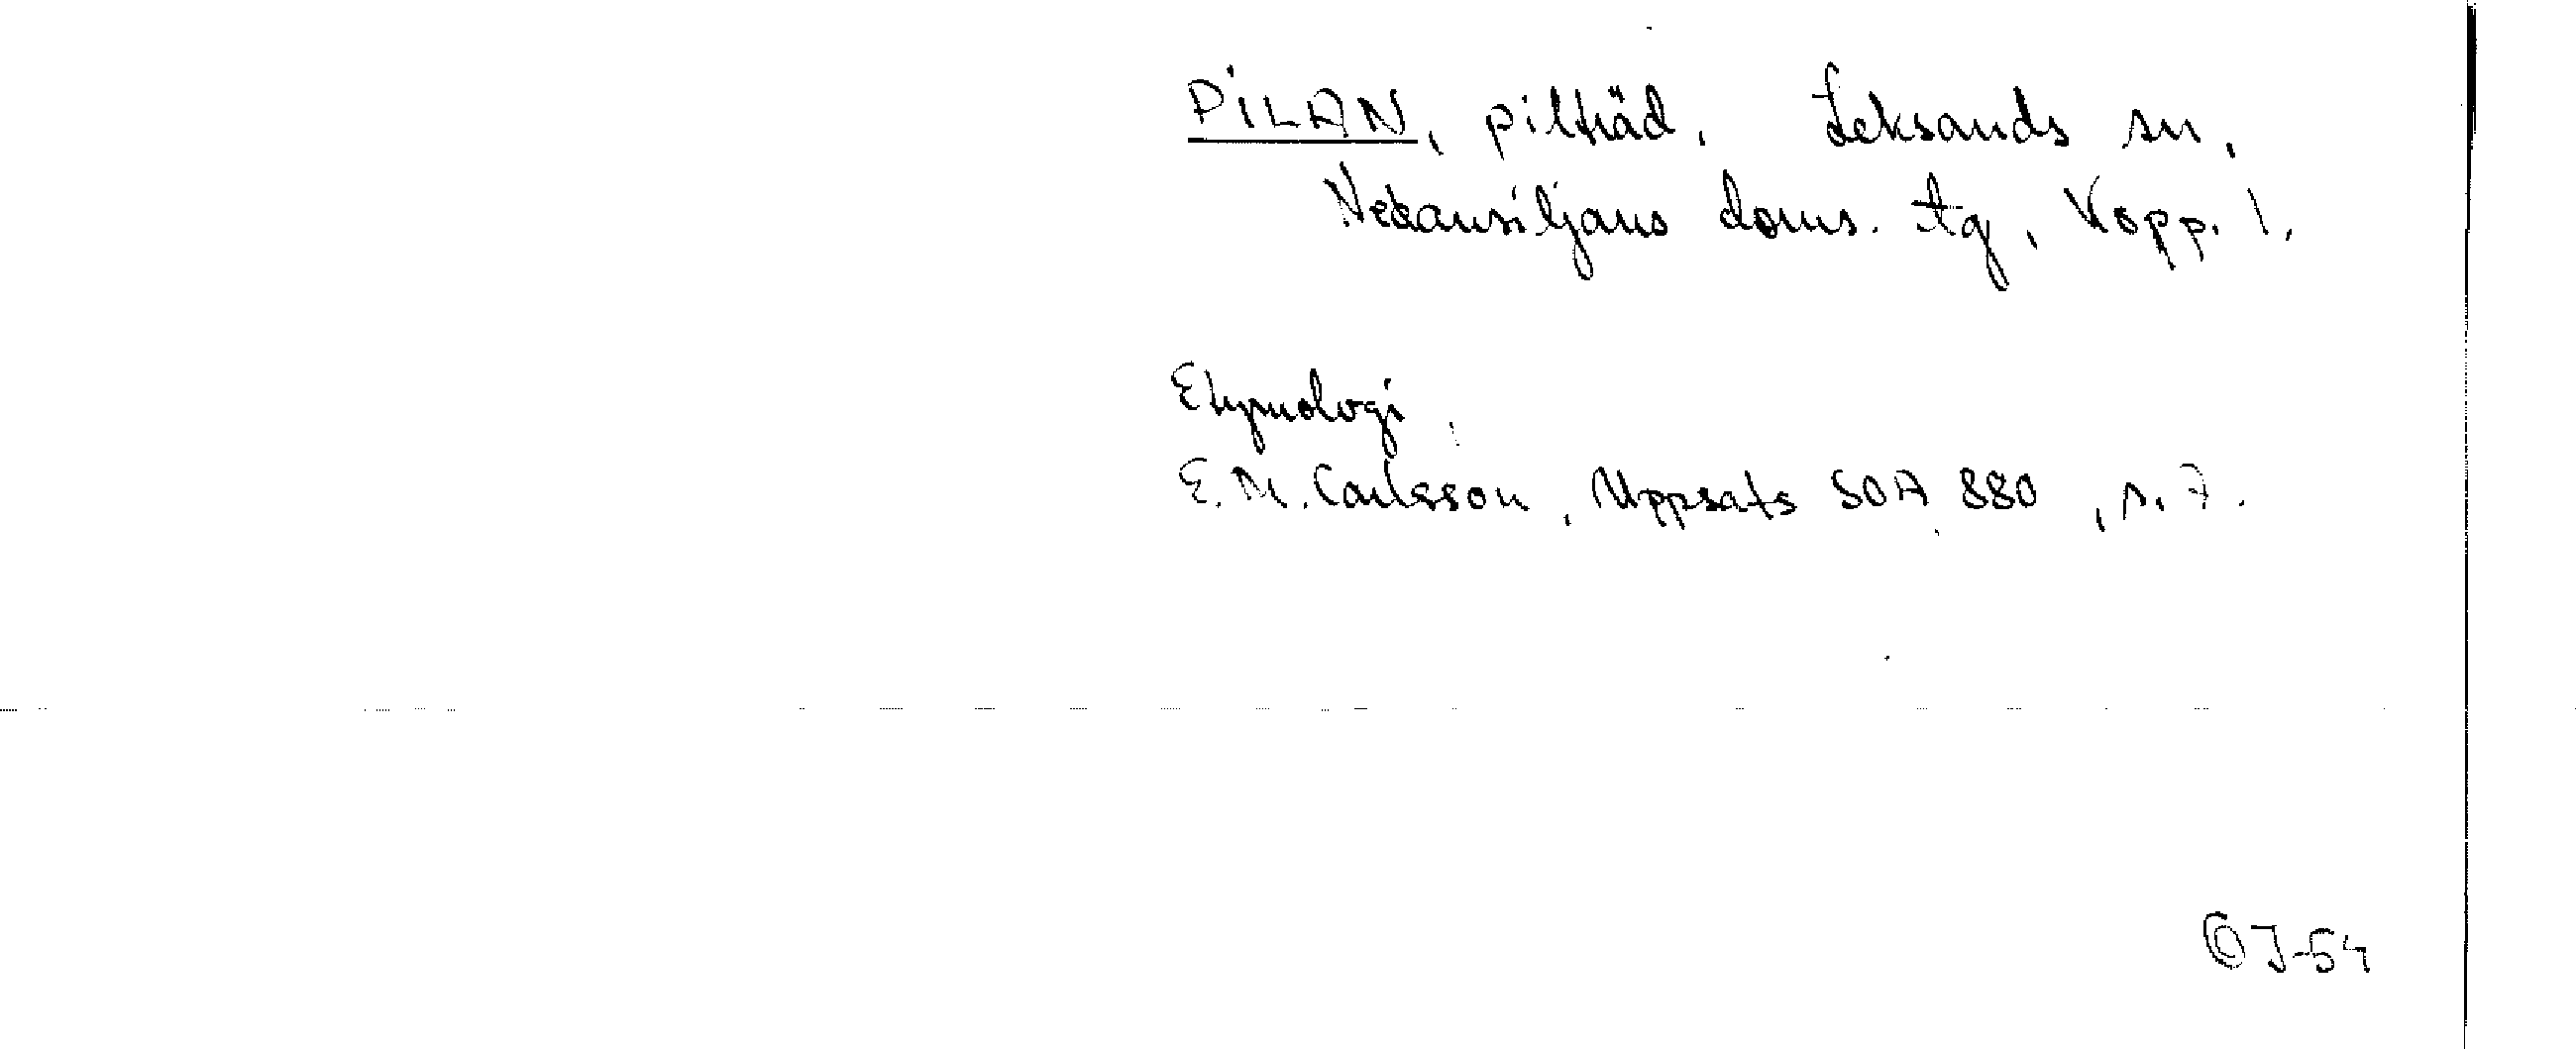 PILAN, pilträd. Leksands sn,
Nedansiljans doms. tg, Kopp. l.
Etymologi.
E.M. Carlsson, Uppsats SOA 880, s. 7.
J-54